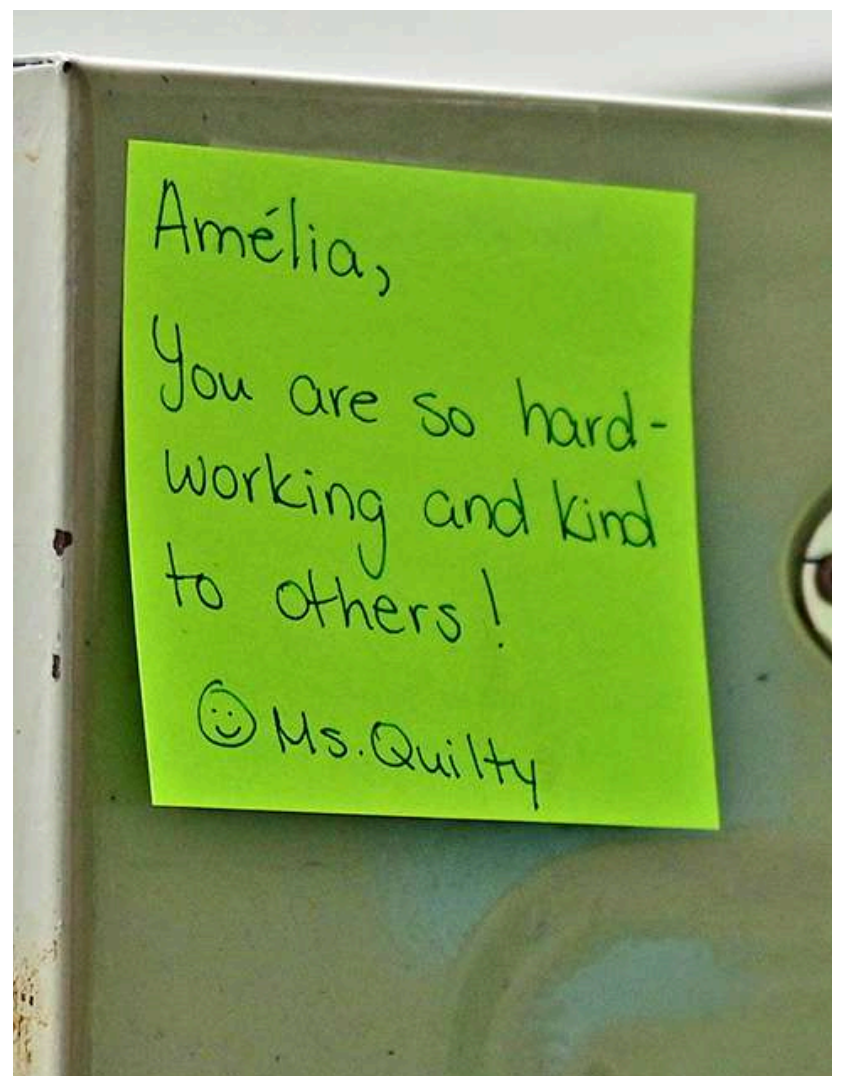 Amélia,
You are so hard-
working and kind
to others!
Ms. Quilty